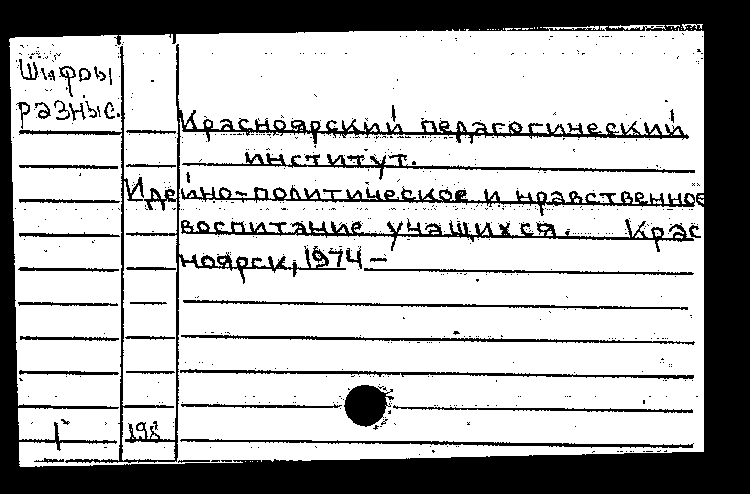 Шифры
разные.
Красноярский педагогический
институт.
Идейно-политическое и нравственное
воспитание учащихся. Крас
ноярск, 1974 –
198